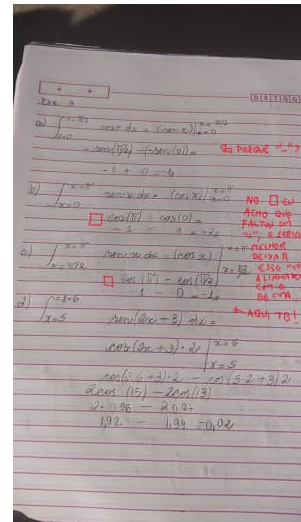 a) ∫ x=π/2 x=0 cosx dx = (sen x) | x=π/2 x=0
= sen(π/2) - (-sen(0)) = PORQUE "-"?
-1 + 0 = -1
b) ∫ x=π x=0 senx dx = (cosx) | x=π x=0
□ cos(π) - cos(0) =
-1 - 1 = -2
NO □ EU
ACHO QUE
FALTOU UM
"=", E SERIA
MELHOR
DEIXAR
ESSE "="
ALINHADO
COM O
DE CIMA
c) ∫ x=π x=π/2 senx dx = (cosx) | x=π x=π/2
□ cos(π) - cos(π/2)
-1 - 0 = -1
AQUI TB!
d) ∫ x=6 x=5 sen(2x+3) dx =
cos(2x+3)·2 | x=6 x=5
cos(2·6+3)·2 - cos(5·2+3)2
2cos(15) - 2cos(13)
1,92 - 1,94 = 0,02